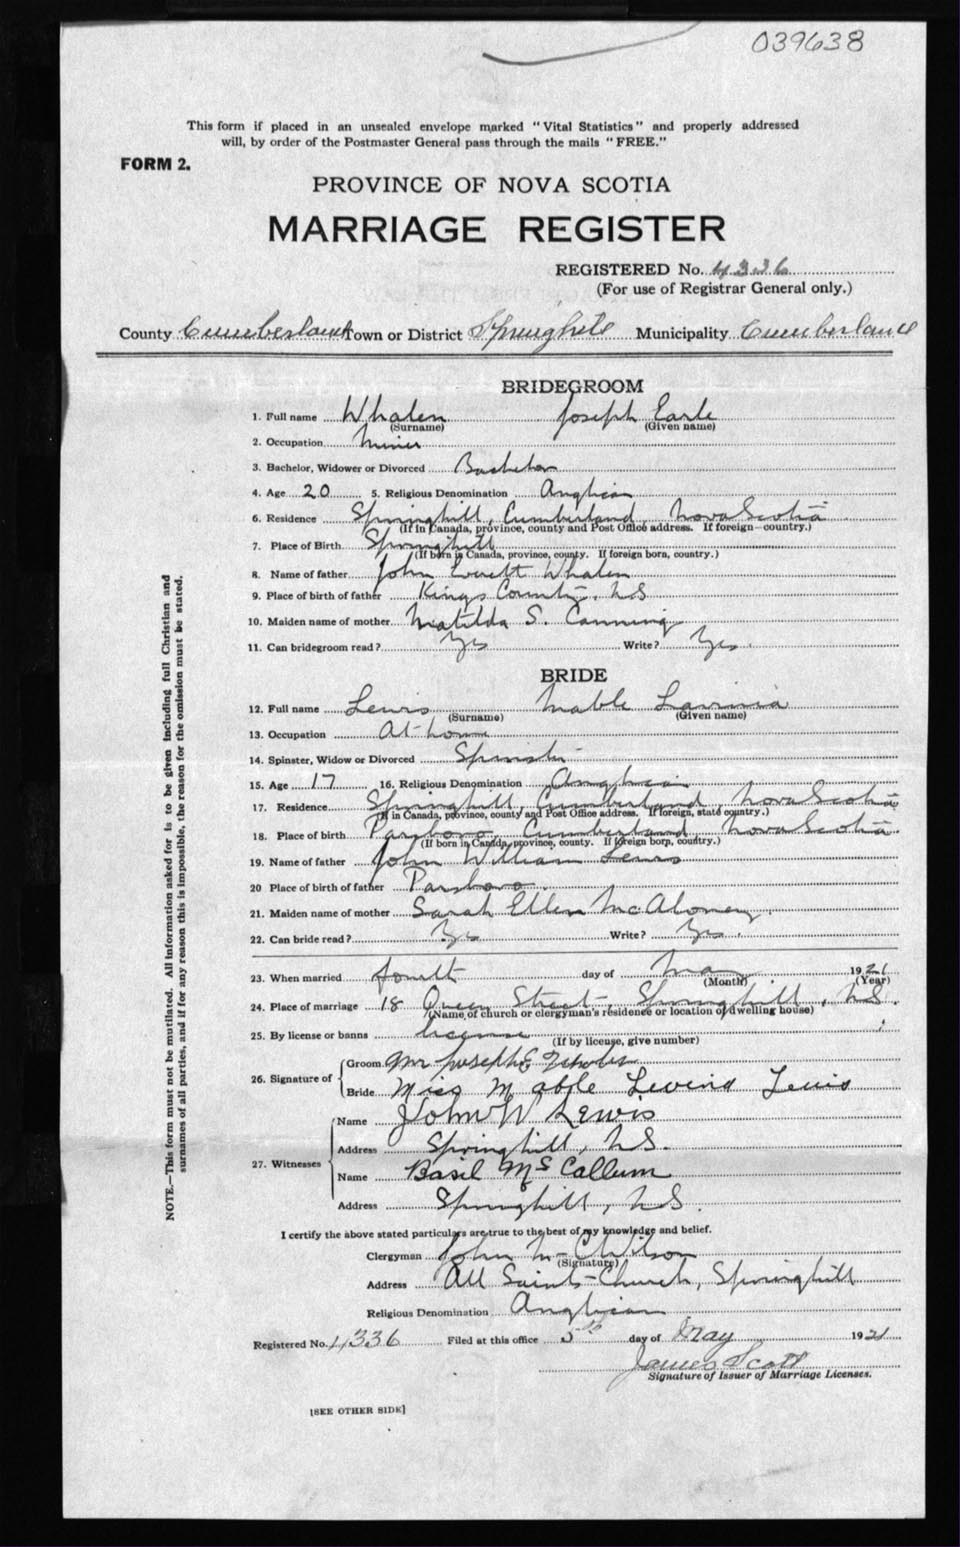 039638
This form if placed in an unsealed envelope marked "Vital Statistics" and properly addressed
will, by order of the Postmaster General pass through the mails "FREE."
FORM 2.
PROVINCE OF NOVA SCOTIA
MARRIAGE REGISTER
REGISTERED No. 4336
(For use of Registrar General only.)
County Cumberland Town or District Springhill Municipality Cumberland
BRIDEGROOM
1. Full name Whalen Joseph Earle
(Surname) (Given name)
2. Occupation Miner
3. Bachelor, Widower or Divorced Bachelor
4. Age 20 5. Religious Denomination Anglican
6. Residence Springhill, Cumberland, Nova Scotia
(If in Canada, province, county and Post Office address. If foreign—country.)
7. Place of Birth Springhill
(If born in Canada, province, county. If foreign born, country.)
8. Name of father John Everett Whalen
9. Place of birth of father Kings County, N.S
10. Maiden name of mother Matilda S. Canning
11. Can bridegroom read? Yes Write? Yes.
BRIDE
12. Full name Lewis Mable Lavinia
(Surname) (Given name)
13. Occupation At home
14. Spinster, Widow or Divorced Spinster
15. Age 17 16. Religious Denomination Anglican
17. Residence Springhill, Cumberland, Nova Scotia
(If in Canada, province, county and Post Office address. If foreign, state country.)
18. Place of birth Parsboro, Cumberland, Nova Scotia
(If born in Canada, province, county. If foreign born, country.)
19. Name of father John William Lewis
20 Place of birth of father Parsboro.
21. Maiden name of mother Sarah Ellen McAloney.
22. Can bride read? Yes Write? Yes.
23. When married fourth day of May 1921
(Month) (Year)
24. Place of marriage 18 Queen Street, Springhill, N.S.
(Name of church or clergyman's residence or location of dwelling house)
25. By license or banns license
(If by license, give number)
26. Signature of
Groom Mr Joseph E
Bride Miss Mable Levina Lewis
27. Witnesses
Name John W Lewis
Address Springhill, N.S.
Name Basil McCallum
Address Springhill, N.S.
I certify the above stated particulars are true to the best of my knowledge and belief.
Clergyman John M-C Wilson
(Signature)
Address All Saints Church, Springhill
Religious Denomination Anglican
Registered No. 4336 Filed at this office 5th day of May 1921
James Scott
Signature of Issuer of Marriage Licenses.
[SEE OTHER SIDE]
NOTE.—This form must not be mutilated. All information asked for is to be given including full Christian and
surnames of all parties, and if for any reason this is impossible, the reason for the omission must be stated.